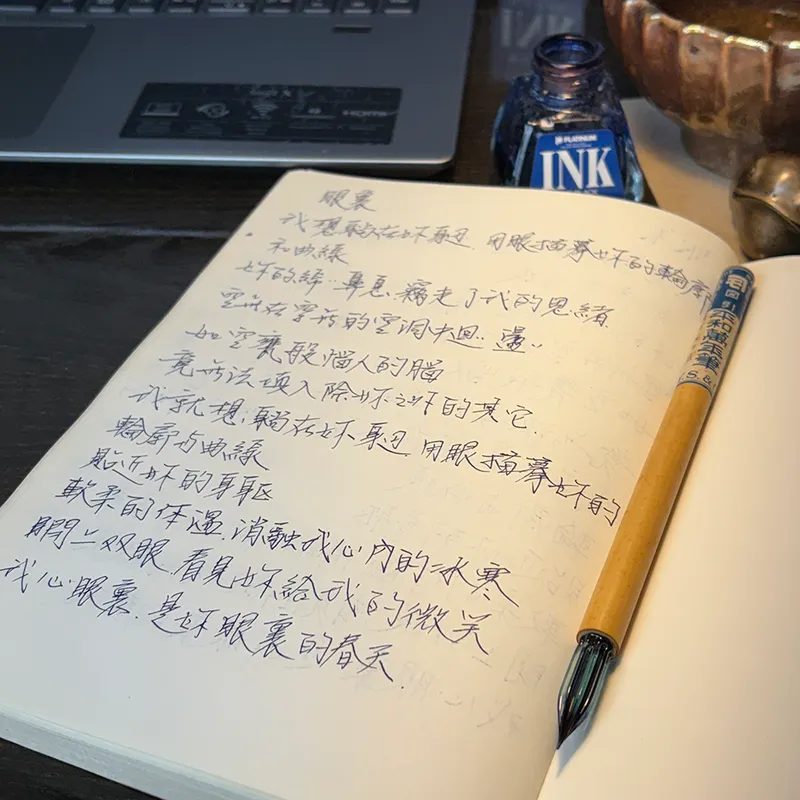 眼裏
我想躺在妳身邊 用眼描摹妳的輪廓
和曲線
妳的絲‥鼻息 竊走了我的思緒
空蕩在空蕩的空洞中迴‥盪‥
如空甕般惱人的腦
竟無法填入除妳之外的其它
我就想 躺在妳身邊 用眼描摹妳的
輪廓与曲線
貼近妳的身軀
軟柔的体溫 消融我心內的冰寒
閉上双眼 看見妳給我的微笑
我心眼裏 是妳眼裏的春天
PLATINUM
INK
平和萬年筆